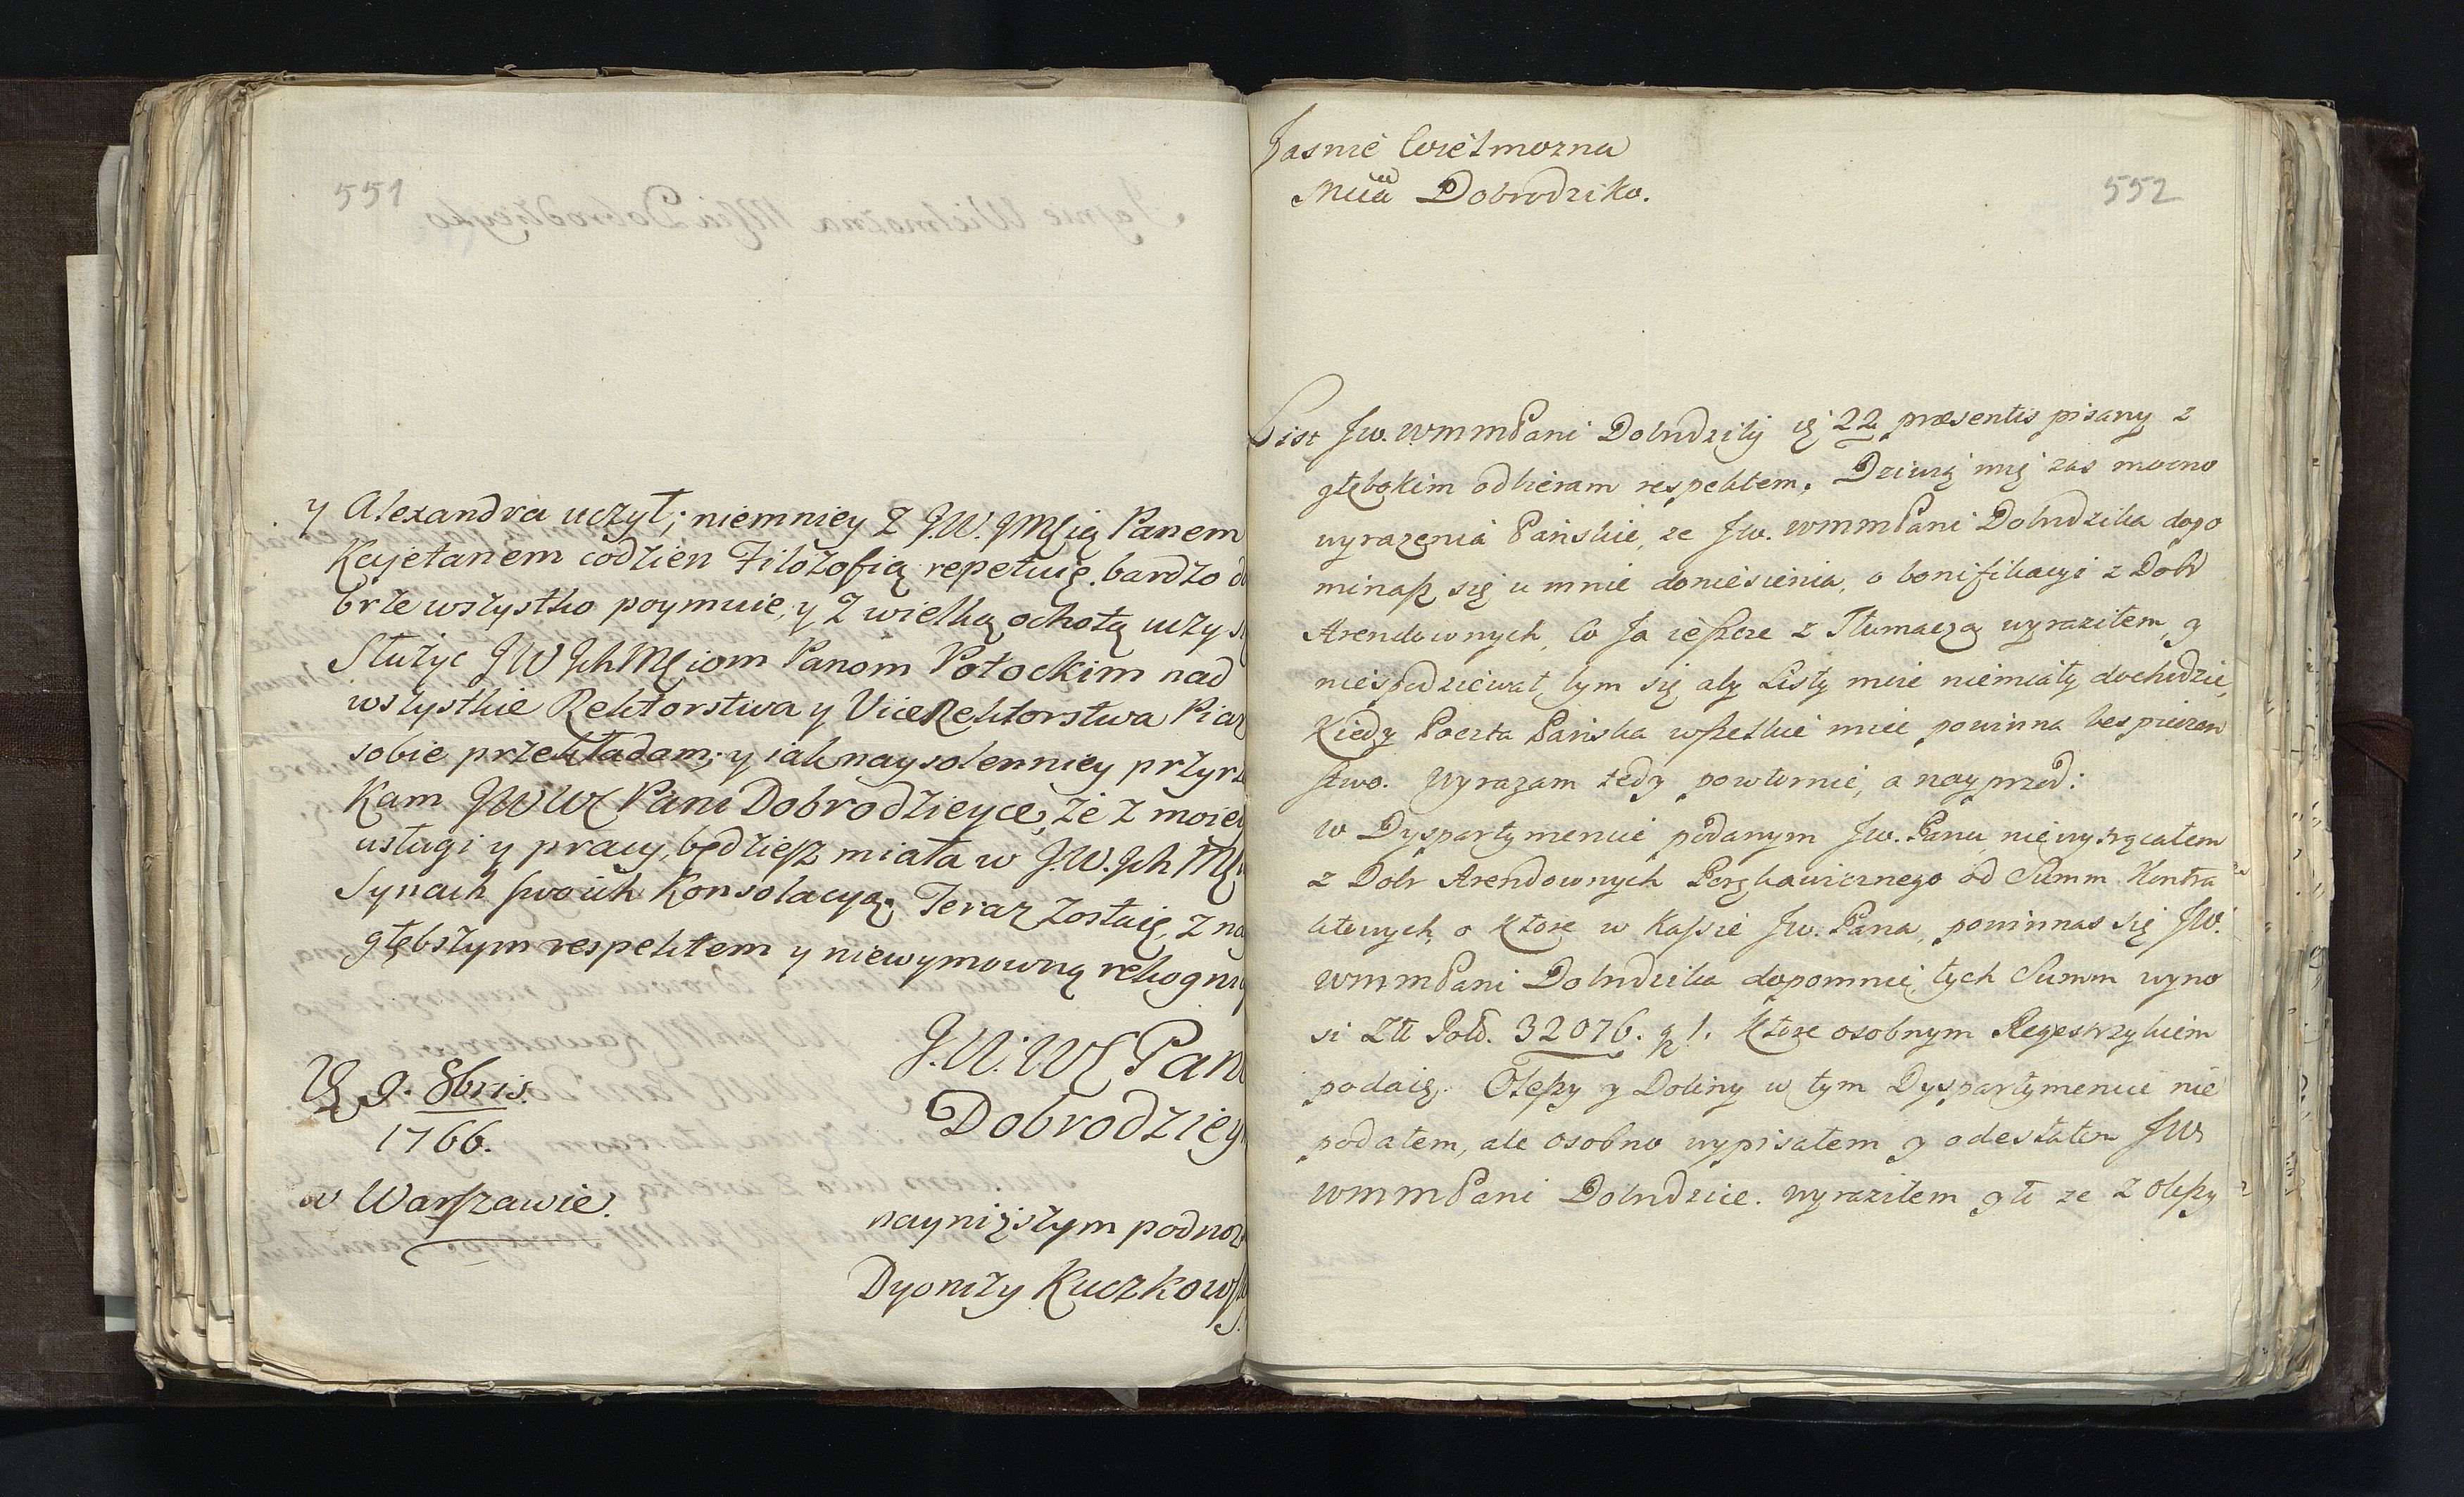 551
y Alexandra uczył; niemniey z J.W. JMścią Panem
Kajetanem codzien Filozofią repetuię. bardzo do
brze wszystko poymuie, y z wielką ochotą uczy się
Służyc JW JchMściom Panom Potockim nad
wszystkie Rektorstwa y ViceRektorstwa Piar
sobie przekładam; y iak naysolenniey przyrze
kam JWWM Pani Dobrodzieyce, że z moiey
usługi y pracy, będziesz miała w J.W. JchMś
Synach swoich Konsolacyą. Teraz zostaię, z na
głębszym respektem y niewymowną rekogni
J.W.WM Pani
Dobrodziey
D. 9. 8bris.
1766.
w Warszawie.
nayniższym podnoż
Dyonizy Kuczkows
552
Jasnie Wielmozna
Mcia Dobrodziko.
List Jw. WMMPani Dobrudziky 22 præsentis pisany z
głębokim odbieram respektem. Dziwią mię zas mocno
wyrazenia Pańskie, ze Jw. WMMPani Dobrudzika dopo
minasz się u mnie doniesienia, o bonifikacyi z Dobr
Arendownych, Co Ja ieszcze z Tłumacza wyraziłem, y
niespodziewał tym się aby Listy moie niemiały dochodzic,
Kiedy Poczta Pańska wszelkie miec powinna bespieczen
stwo. Wyrazam tedy powtornie, a nayprzod:
w Dyspartymencie podanym Jw. Panu niewytrącałem
z Dobr Arendownych Porękawicznego od Summ Kontra
ktowych, o ktore w Kassie Jw. Pana, powinnas się JW.
WMMPani Dobrudzika dopomnić, tych Summ wyno
si Złł Pold. 32076. g 1. Ktore osobnym Regestrzykiem
podaię. Oleszy y Doliny w tym Dyspartymencie nie
podałem, ale osobno wypisałem y odesłałem JW
WMMPani Dobrudzice. Wyraziłem ze z Oleszy